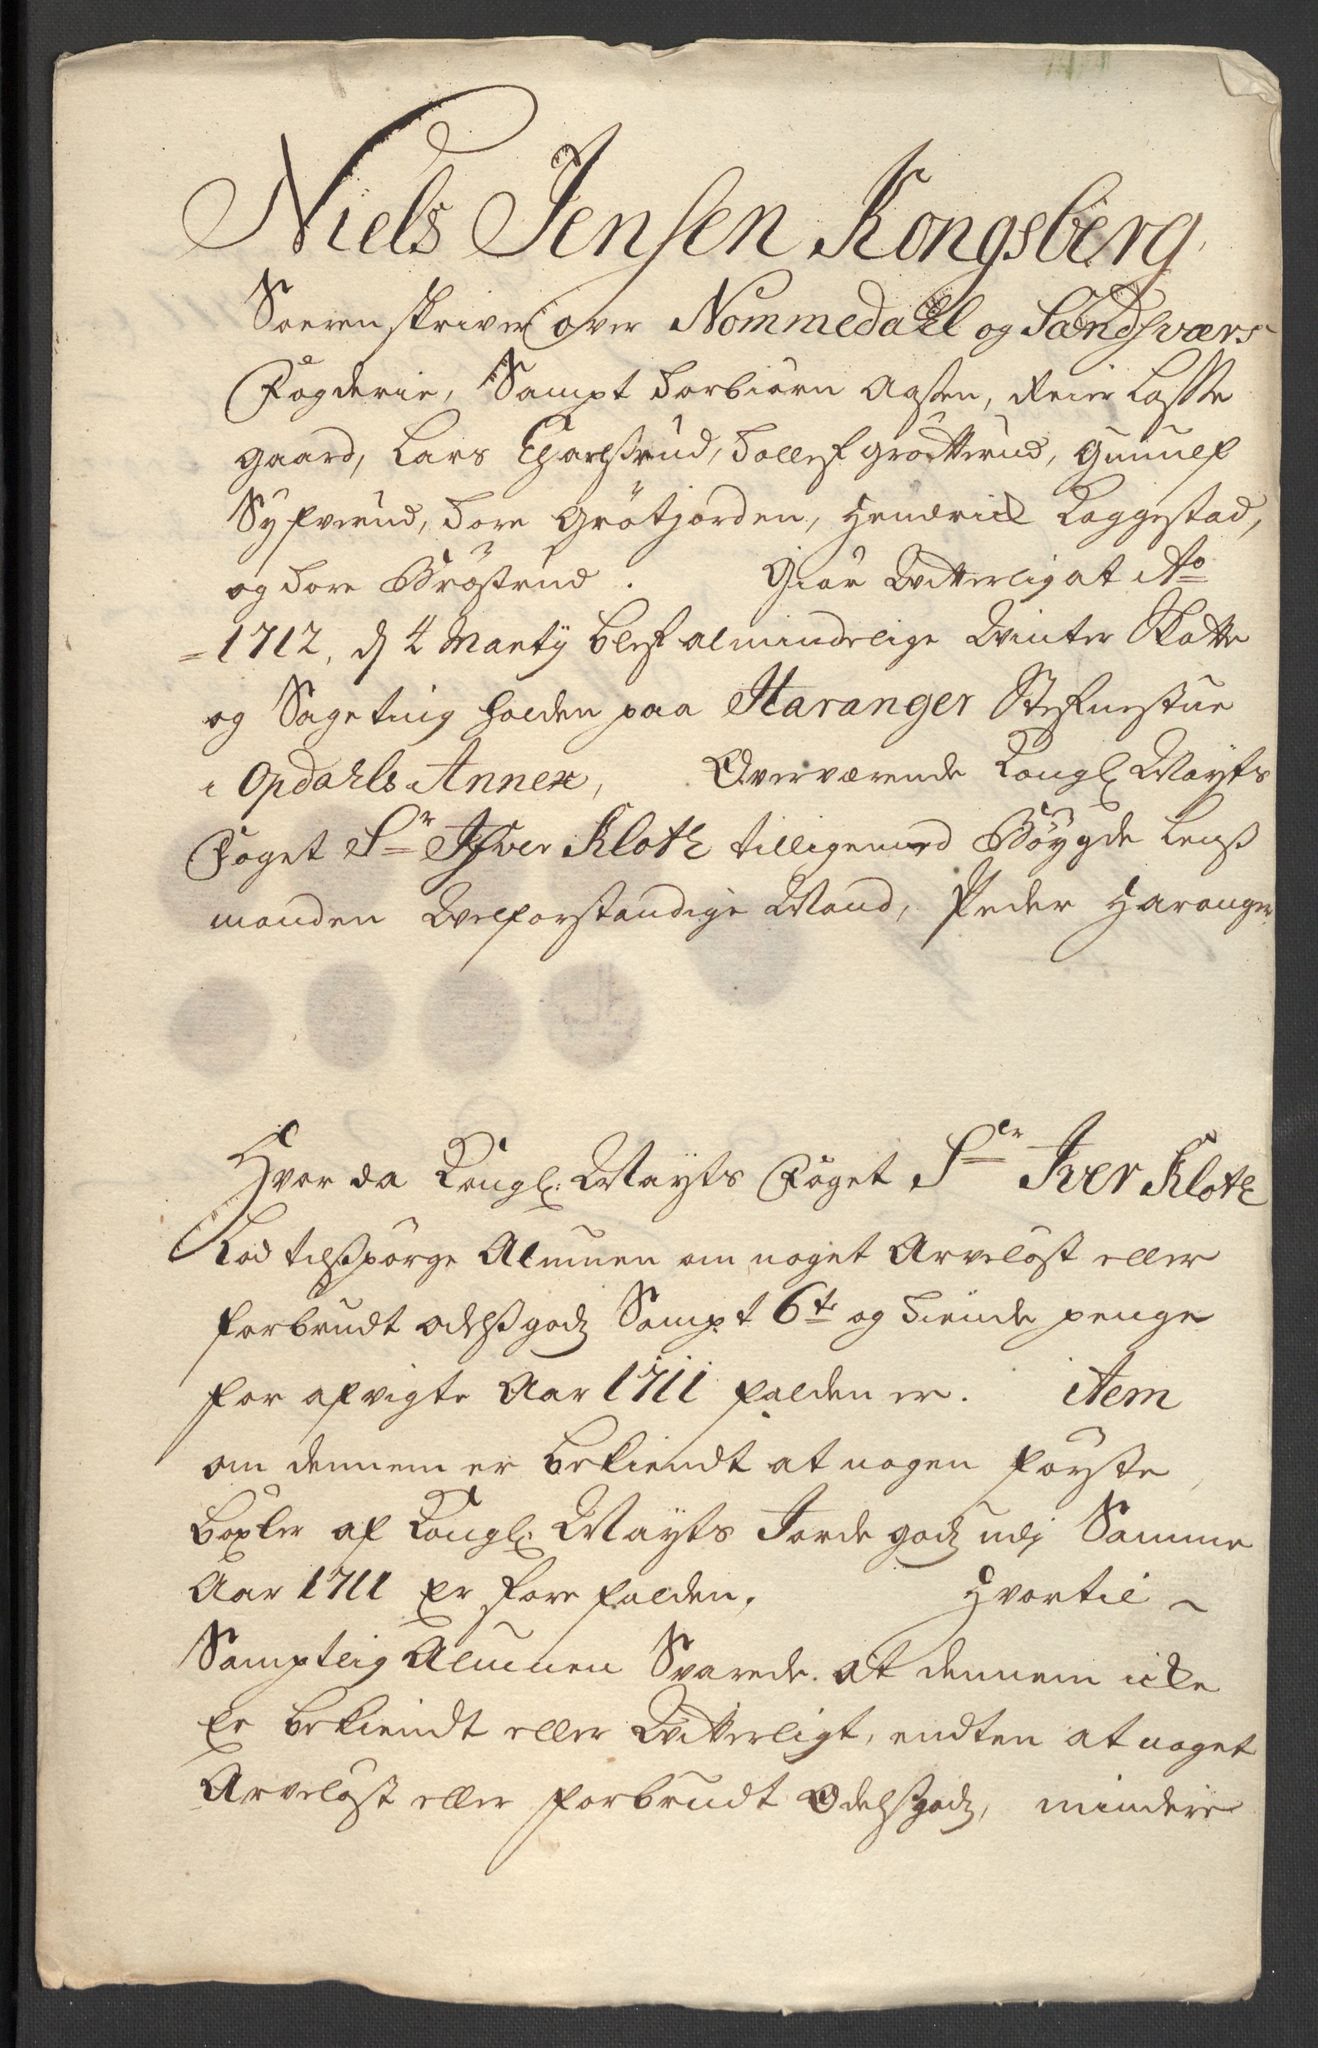 Niels Jensen Kongsberg,
Soerenskriver over Nommedahl og Sandsværs
Fogderie, Sampt Torbiørn Aasen, Reier Lasse
gaard, Lars Tollef Grøtterud, Gunulf
Syfverud, Tore Grøtjorden, Hendrick Laggestad,
og Tore Brøstrud. Giør Witterlig at Ao
1712, d 4 Marty blef almindelige Winter Skatte
og Sageting holden paa Haranger Stefnestue
i Opdahls Annex, Overværende Kongl Mayts
Foget Sr Ifver Klotz tilligemed Bøygde Lens
manden Welforstandige Mand, Peder Haranger
Hvor da Kongl: Mayts Foget Sr Iver Klotz
Lod tilspørge Almuen om noget Arveløst eller
forbrudt odelsgods Sampt 6te og tiende penge
for afvigte Aar 1711 falden er. item
om dennem er bekiendt at nogen første
bøxler af Kongl: Mayts Jordegods udj Samme
Aar 1711 Er forefalden, Hvortil
Samptlig Almuen Svarede at dennem icke
Er bekiendt eller Witterligt, endten at noget
Arveløst eller forbrudt Odelsgods, mindre